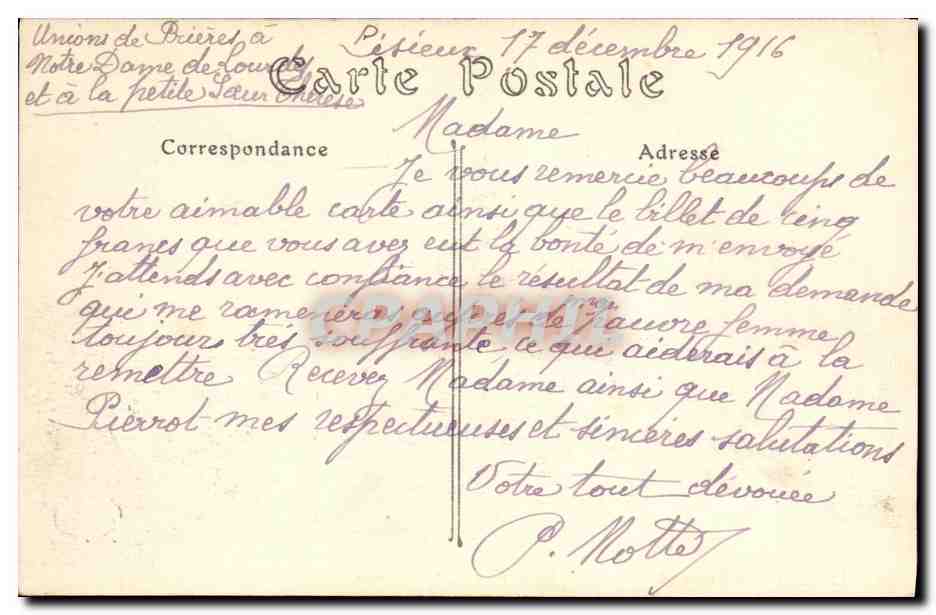 Unions de Prières à
Notre Dame de Lourdes
et à la petite Sœur Thérèse
Lisieux 17 décembre 1916
Carte Postale
Madame
Correspondance
Adresse
Je vous remercie beaucoups de
votre aimable carte ainsi que le billet de cinq
francs que vous avez eut la bonté de m'envoyé
J'attends avec confiance le résultat de ma demande
qui me rameneras de ma pauvre femme
toujours très souffrante, ce qui aiderais à la
remettre Recevez Madame ainsi que Madame
Pierrot mes respectueuses et sincères salutations
Votre tout dévouée
P. Motte
CPARAMA